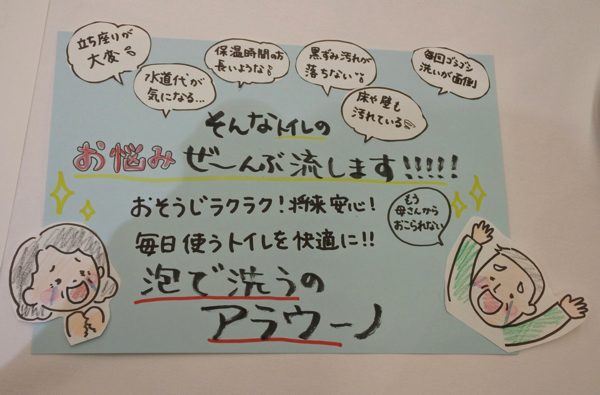 立ち座りが
大変
水道代が
気になる...
保温時間の方
長いような
黒ずみ汚れが
落ちない
床や壁も
汚れている
毎回ゴシゴシ
洗いが面倒
そんなトイレの
お悩みぜーんぶ流します!!!!!
おそうじラクラク!将来安心!
毎日使うトイレを快適に!!
もう
母さんから
おこられない
泡で洗うの
アラウーノ